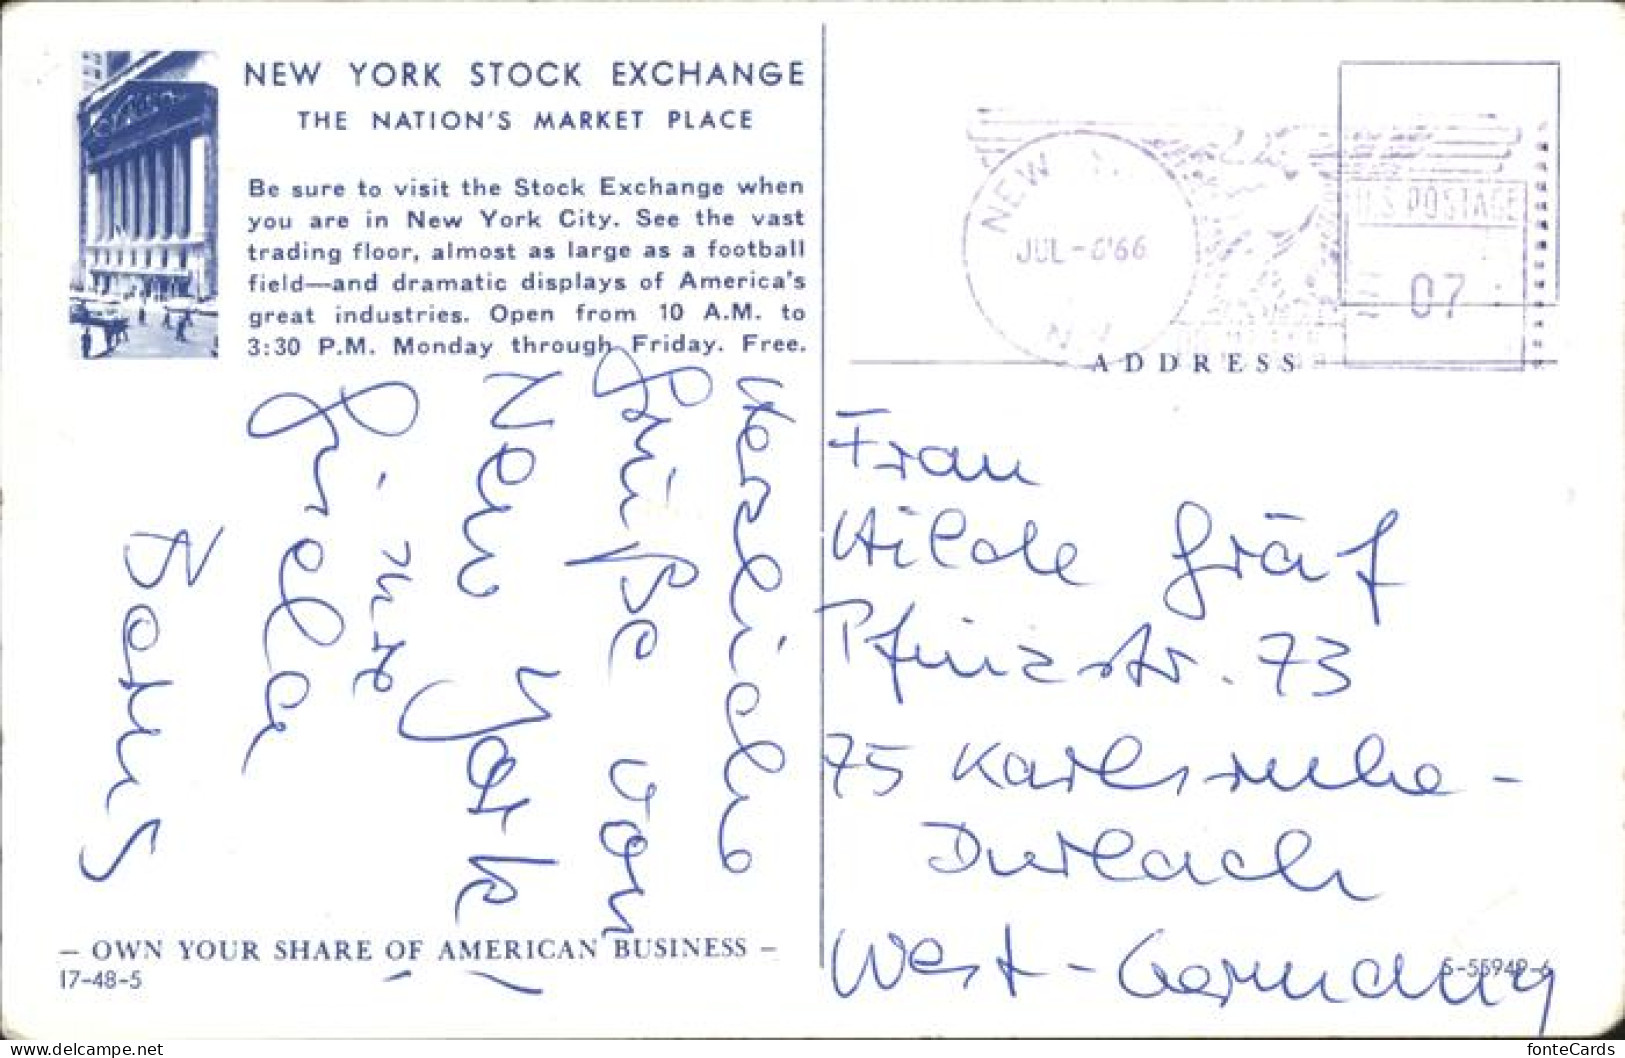 NEW YORK STOCK EXCHANGE
THE NATION'S MARKET PLACE
Be sure to visit the Stock Exchange when
you are in New York City. See the vast
trading floor, almost as large as a football
field—and dramatic displays of America's
great industries. Open from 10 A.M. to
3:30 P.M. Monday through Friday. Free.
Herzliche
Grüße von
New York
Ihre
Gisela
— OWN YOUR SHARE OF AMERICAN BUSINESS —
17-48-5
NEW Y
JUL -6'66
N.Y.
U.S. POSTAGE
07
ADDRESS
Frau
Hilde Gräf
Pfinzstr. 73
75 Karlsruhe-
Durlach
West-Germany
S-55949-6
www.delcampe.net
fonteCards